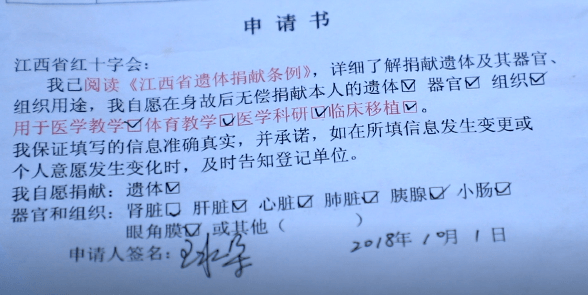 申请书
江西省红十字会：
我已阅读《江西省遗体捐献条例》，详细了解捐献遗体及其器官、
组织用途，我自愿在身故后无偿捐献本人的遗体☑ 器官☑ 组织☑
用于医学教学☑体育教学☑医学科研☑临床移植☑。
我保证填写的信息准确真实，并承诺，如在所填信息发生变更或
个人意愿发生变化时，及时告知登记单位。
我自愿捐献：遗体☑
器官和组织：肾脏☑ 肝脏☑ 心脏☑ 肺脏☑ 胰腺☑ 小肠☑
眼角膜☑ 或其他（ ）
申请人签名： 2018年10月1日